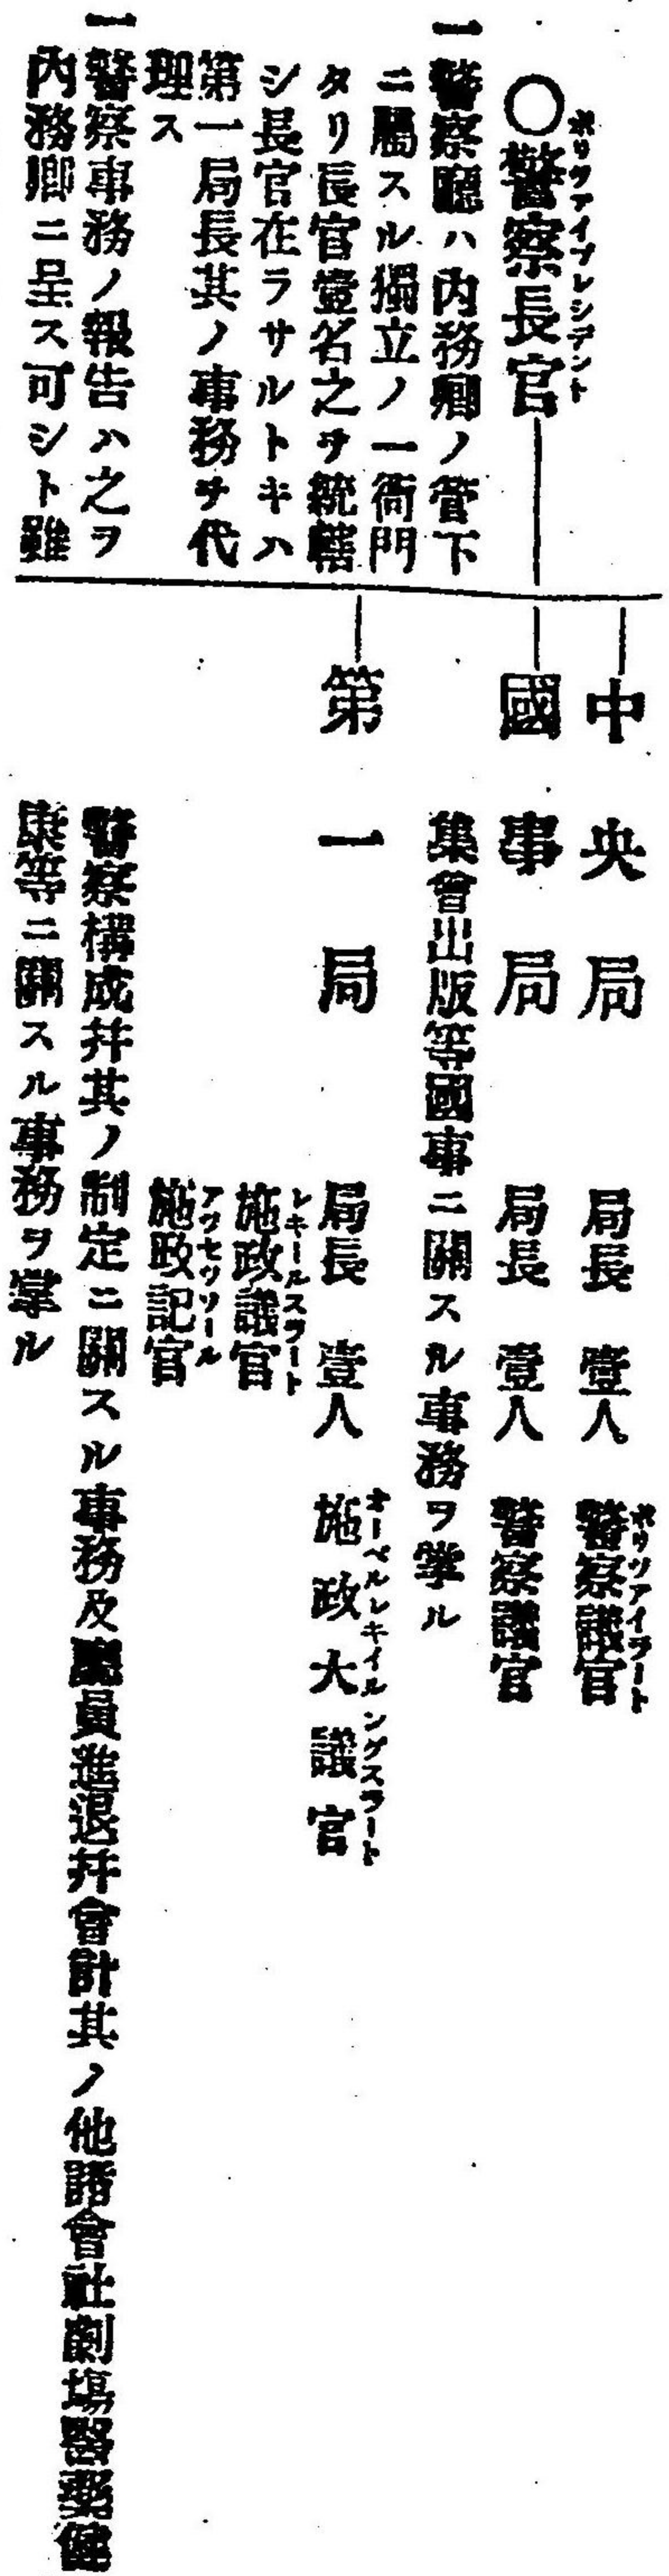 ポリツアイプレシデント
〇警察長官
一警察廳ハ內務卿ノ管下
ニ屬スル獨立ノ一衙門
タリ長官壹名之ヲ統轄
シ長官在ラサルトキハ
第一局長其ノ事務ヲ代
理ス
一警察事務ノ報告ハ之ヲ
內務卿ニ呈ス可シト雖
中央局 局長 壹人 警察議官
ポリツアイラート
國事局 局長 壹人 警察議官
集會出版等國事ニ關スル事務ヲ掌ル
第一局 局長 壹人 施政大議官
オーベルレキイルングスラート
レキールスラート
施政議官
アツセツソール
施政記官
警察構成幷其ノ制定ニ關スル事務及廳員進退幷會計其ノ他諸會社劇場醫藥健
康等ニ關スル事務ヲ掌ル